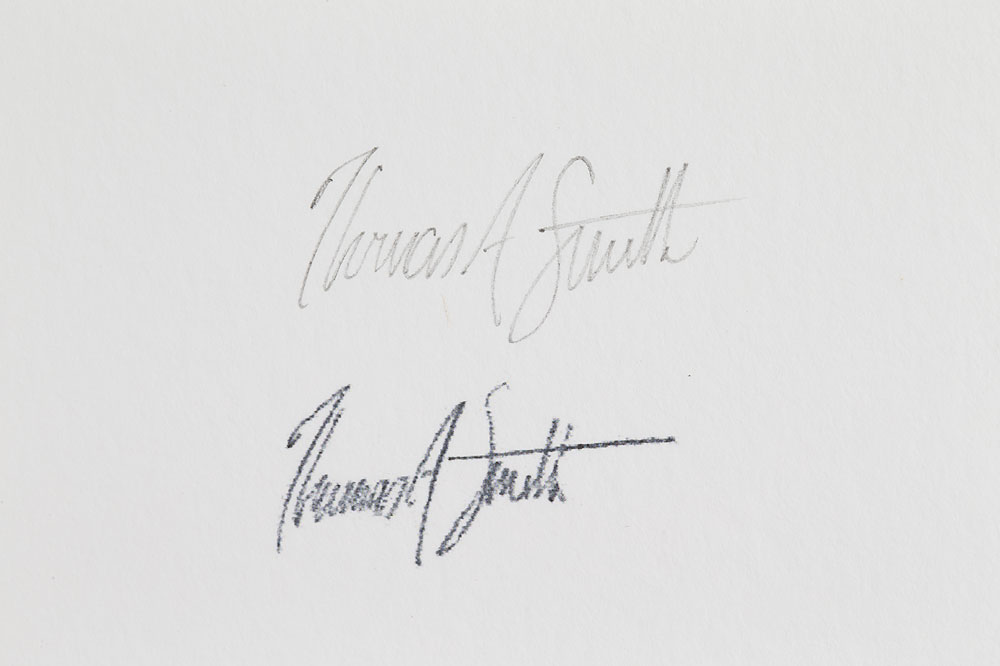 Thomas A Smith
Thomas A Smith